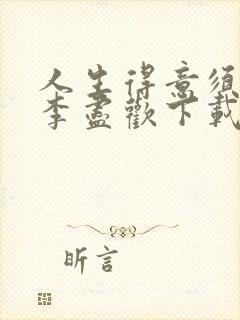 人生得意须
李盡歡下載
昕言